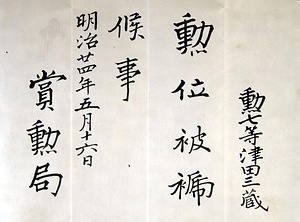 勲七等津田三蔵
勲位被褫
候事
明治廿四年五月十六日
賞勲局